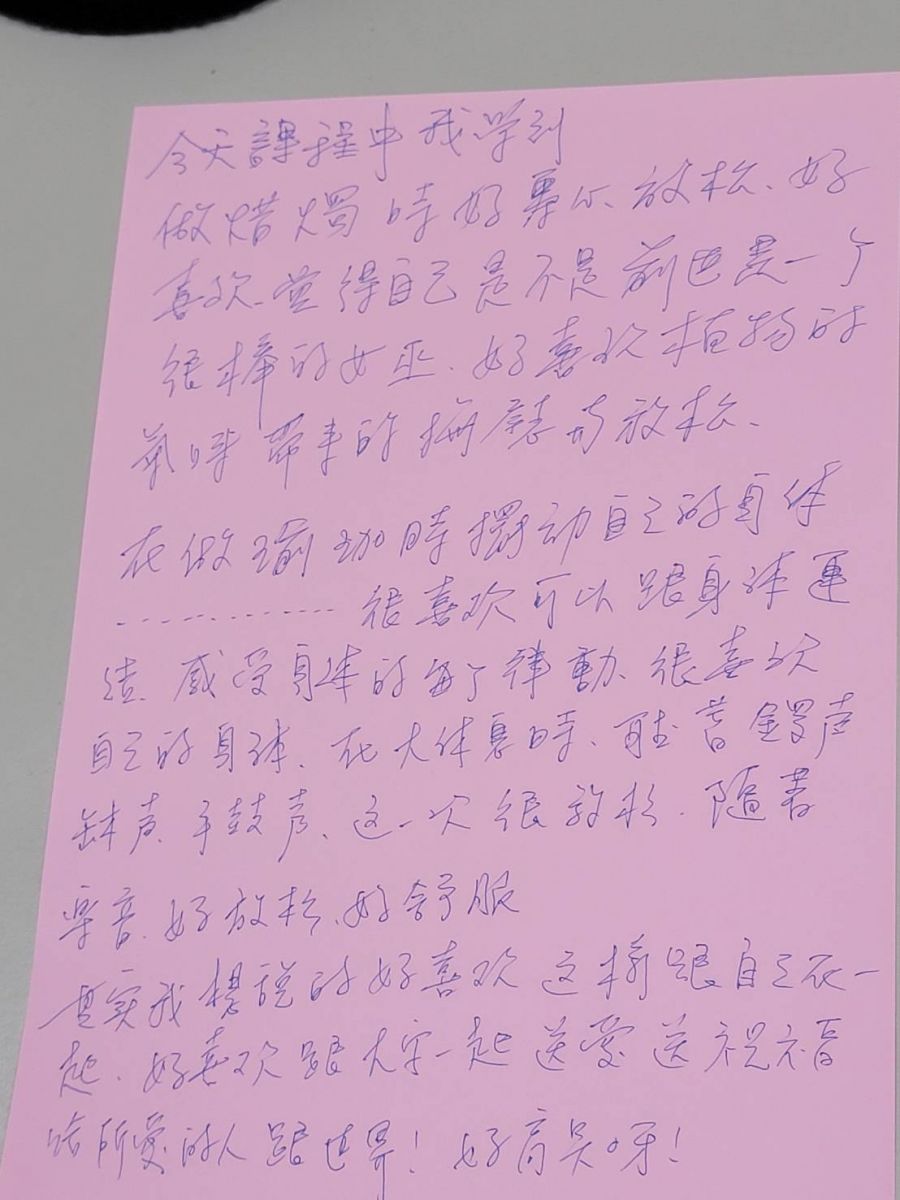 今天課程中我学到
做蜡燭時好專心、放松、好
喜欢、覚得自己是不是前世是一个
很棒的女巫、好喜欢植物的
氣味帶来的撫慰与放松、
在做瑜珈時擺动自己的身体
------------- 很喜欢可以跟身体連
结、感受身体的每个律動、很喜欢
自己的身体、在大休息時、聽着鑼声
缽声、手鼓声、这一次很放松、随着
樂音、好放松、好舒服
其实我想說的好喜欢这樣跟自己在一
起、好喜欢跟大家一起送爱送祝福
给所爱的人跟世界！好高兴呀！